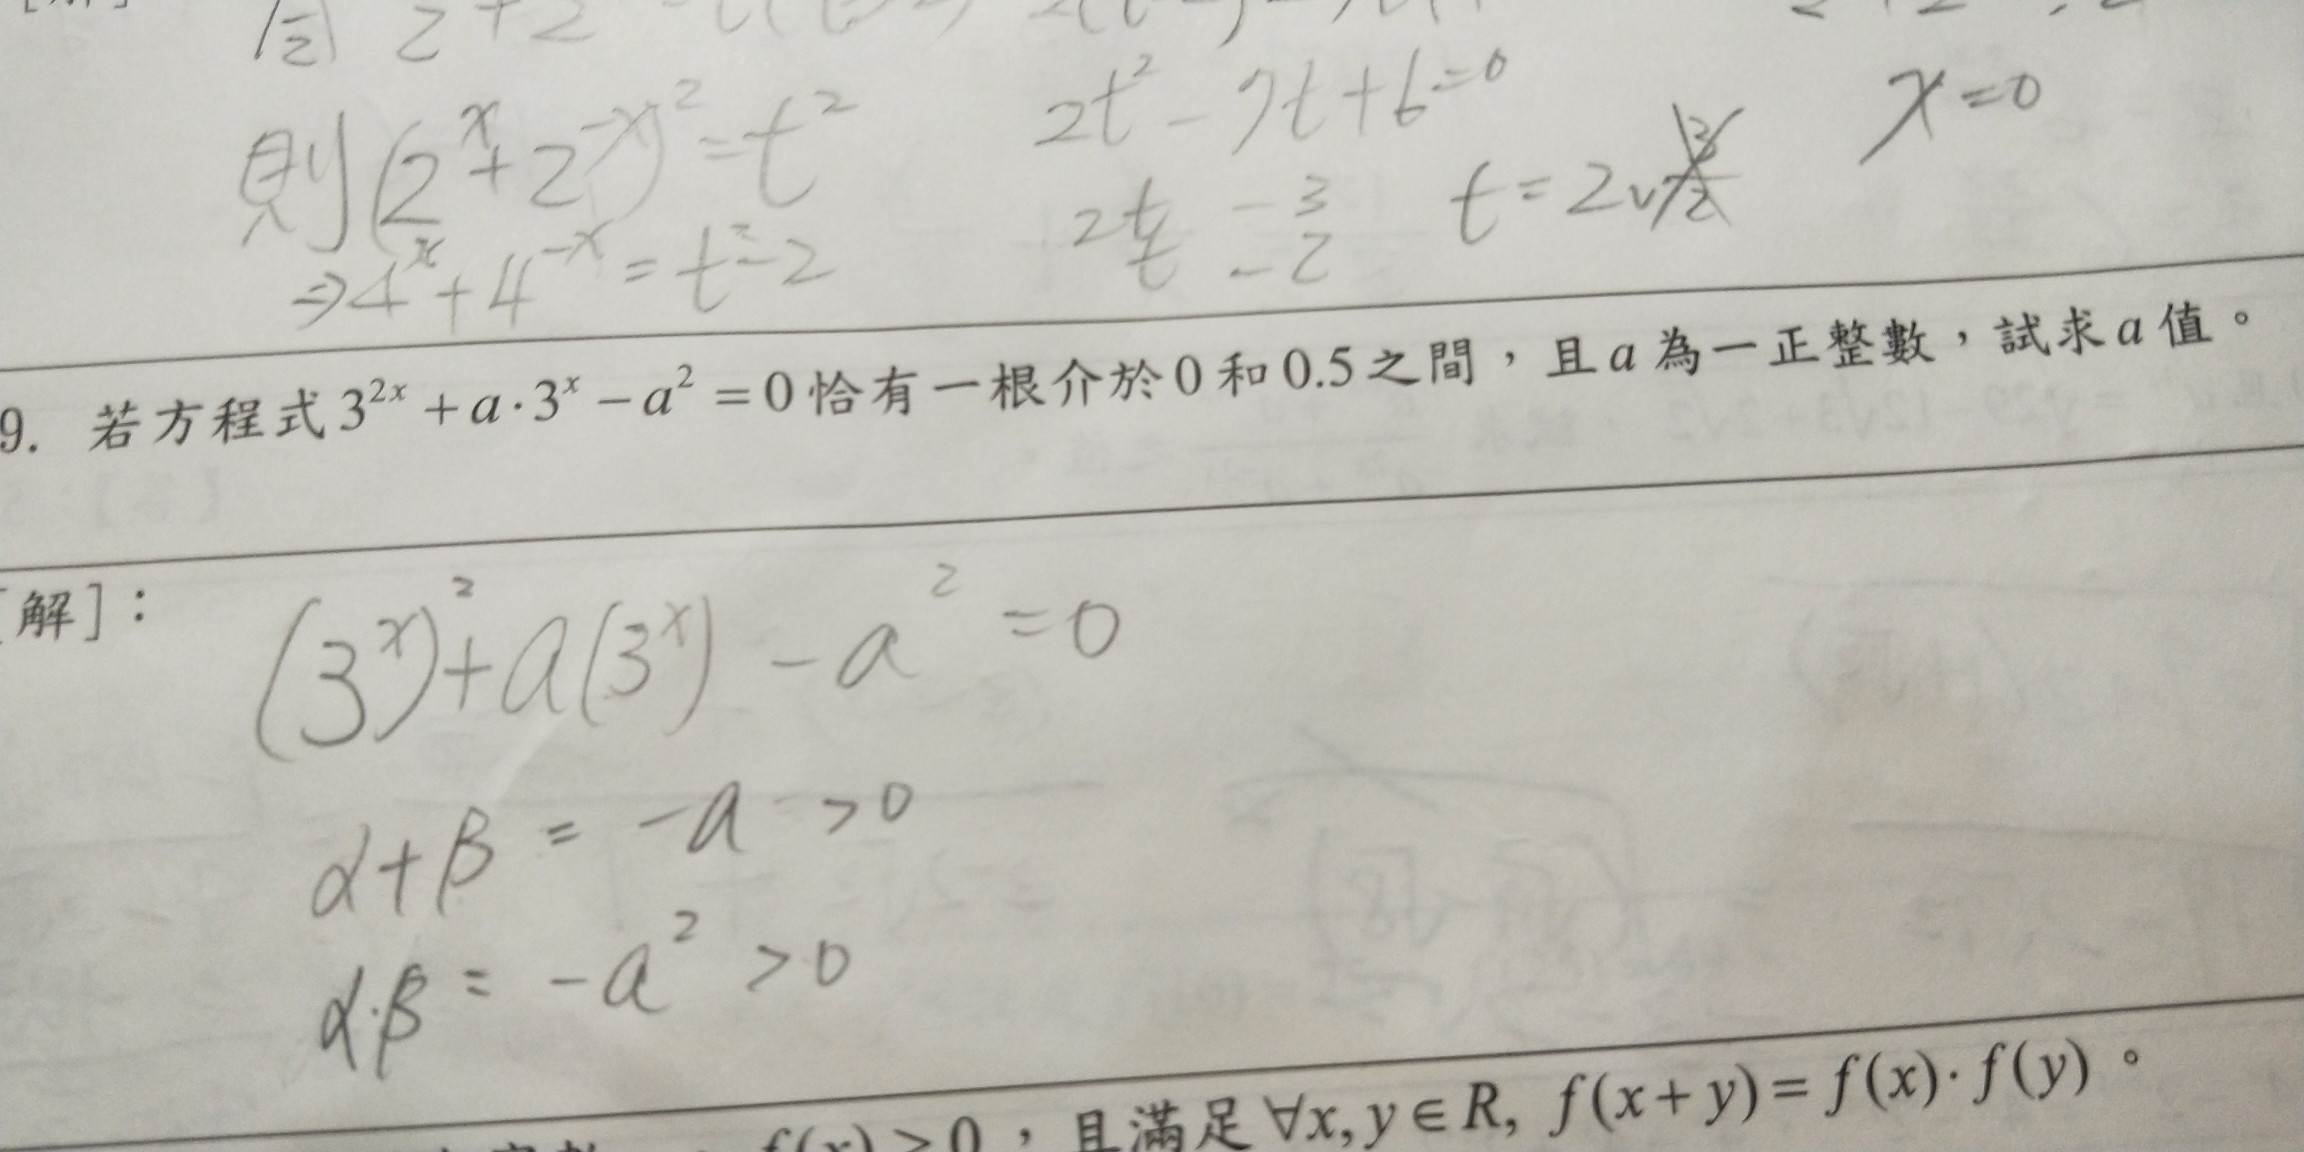 則 (2^x+2^{-x})^2=t^2
⇒4^x+4^{-x}=t^2-2
2t^2-7t+6=0
2t -3
t -2
t=2
x=0
9. 若方程式 3^{2x}+a·3^x-a^2=0 恰有一根介於0和0.5之間，且a為一正整數，試求a值。
[解]：
(3^x)^2+a(3^x)-a^2=0
α+β=-a>0
α·β=-a^2>0
f(x)>0，且滿足∀x,y∈R, f(x+y)=f(x)·f(y)。